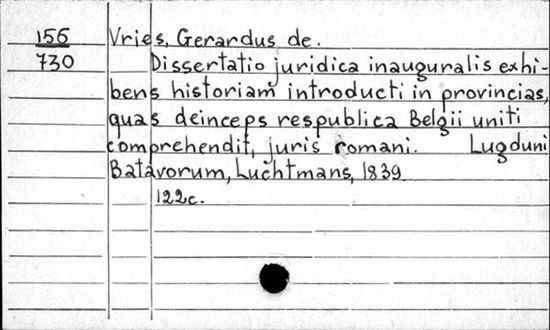 156 Vries, Gerardus de.
730 Dissertatio juridica inauguralis exhi-
bens historiam introducti in provincias,
quas deinceps respublica Belgii uniti
comprehendit, juris romani. Lugduni
Batavorum, Luchtmans, 1839.
122c.